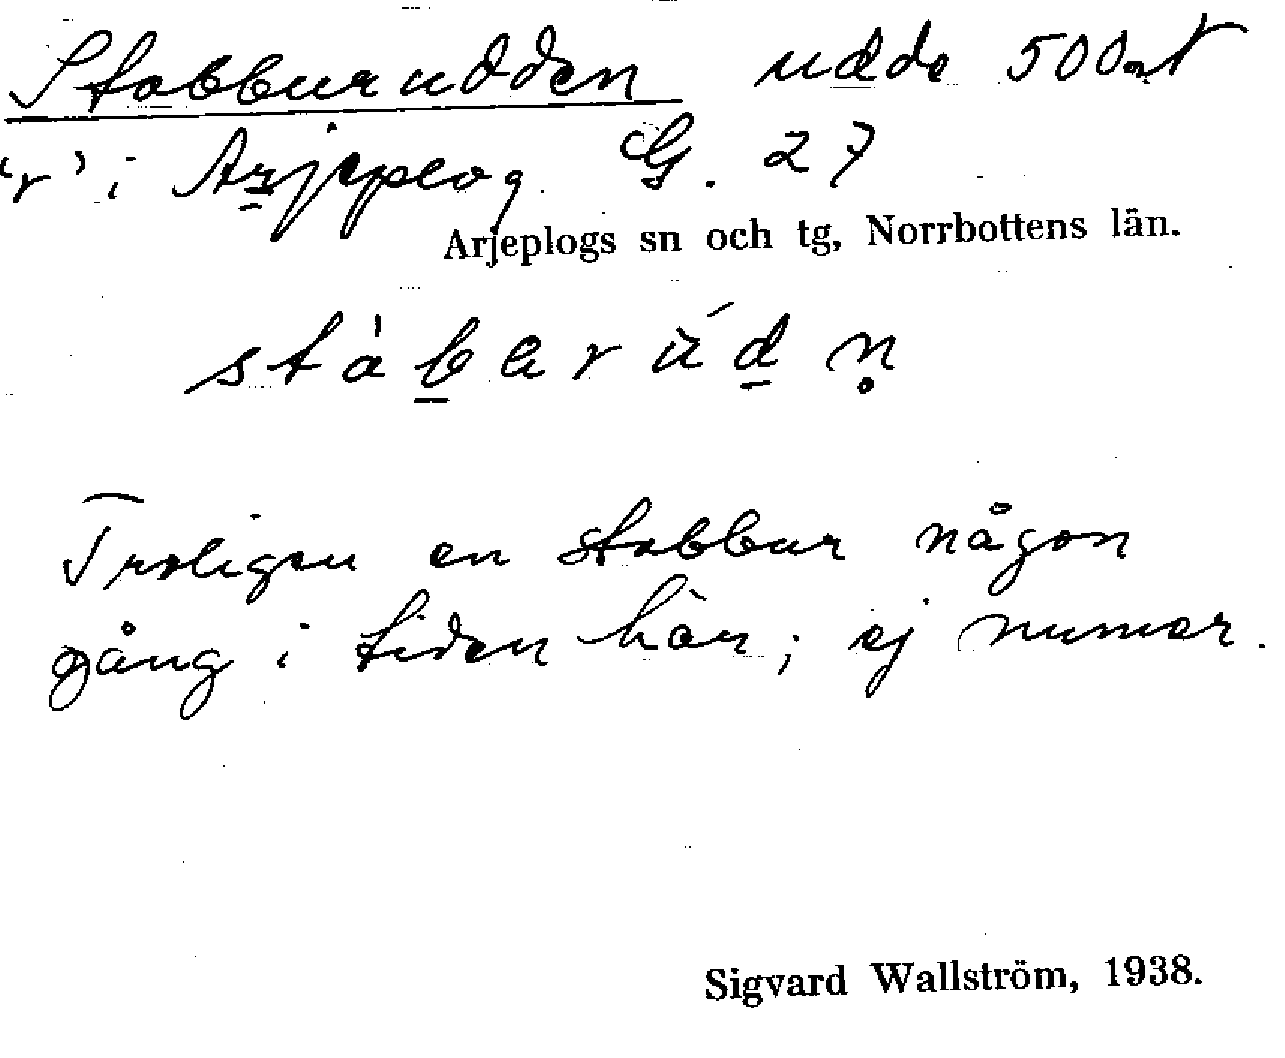 Stabburudden udde 500 m
"r" i Arjeplog G. 27
Arjeplogs sn och tg, Norrbottens län.
stàbarúdn̥
Troligen en stabbur någon
gång i tiden här; ej numer.
Sigvard Wallström, 1938.